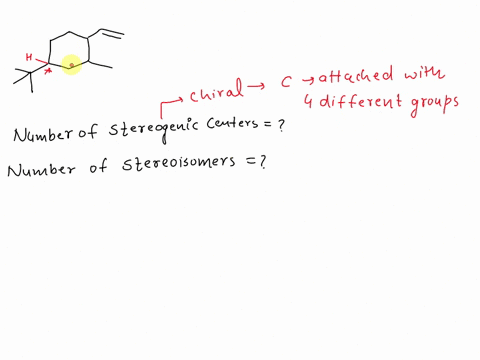 H
*
chiral → C → attached with
4 different groups
Number of Stereogenic Centers = ?
Number of Stereoisomers = ?